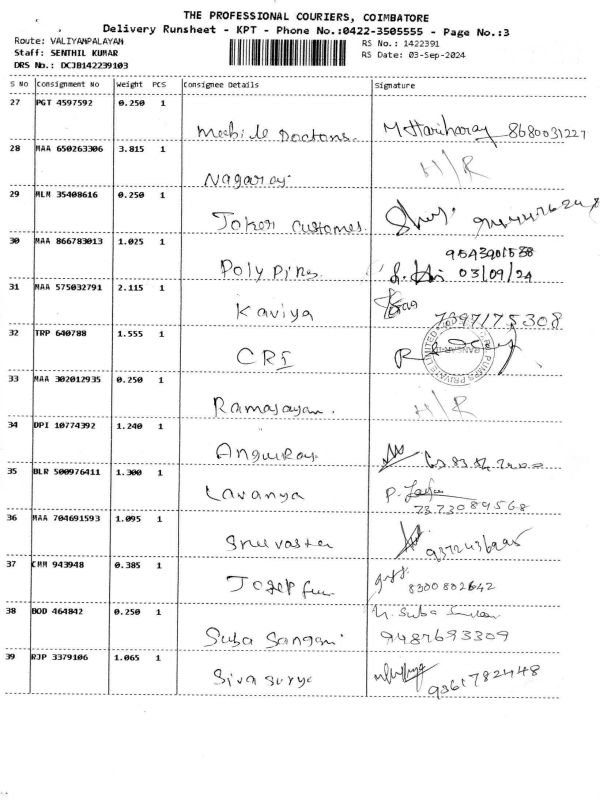 THE PROFESSIONAL COURIERS, COIMBATORE
Delivery Runsheet - KPT - Phone No.:0422-3505555 - Page No.:3
Route: VALIYAMPALAYAM
Staff: SENTHIL KUMAR
DRS No.: DCJB142239103
RS No.: 1422391
RS Date: 03-Sep-2024
S No Consignment No Weight PCS Consignee Details Signature
27 PGT 4597592 0.250 1
Mobile Doctors. M Hariharan 8680031227
28 MAA 650263306 3.815 1
Nagaraj. H/R
29 MLM 35408616 0.250 1
Token Customes
30 MAA 866783013 1.025 1
Poly Pines 03/09/24
31 MAA 575032791 2.115 1
Kaviya 7397175308
32 TRP 640788 1.555 1
CRI
33 MAA 302012935 0.250 1
Ramasayam. H/R
34 DPI 10774392 1.240 1
35 BLR 500976411 1.300 1
Lavanya 7373089568
36 MAA 704691593 1.095 1
37 CMM 943948 0.385 1
8300802642
38 BOD 464842 0.250 1
Suba Sangari 9487693309
39 RJP 3379106 1.065 1
Siva surya